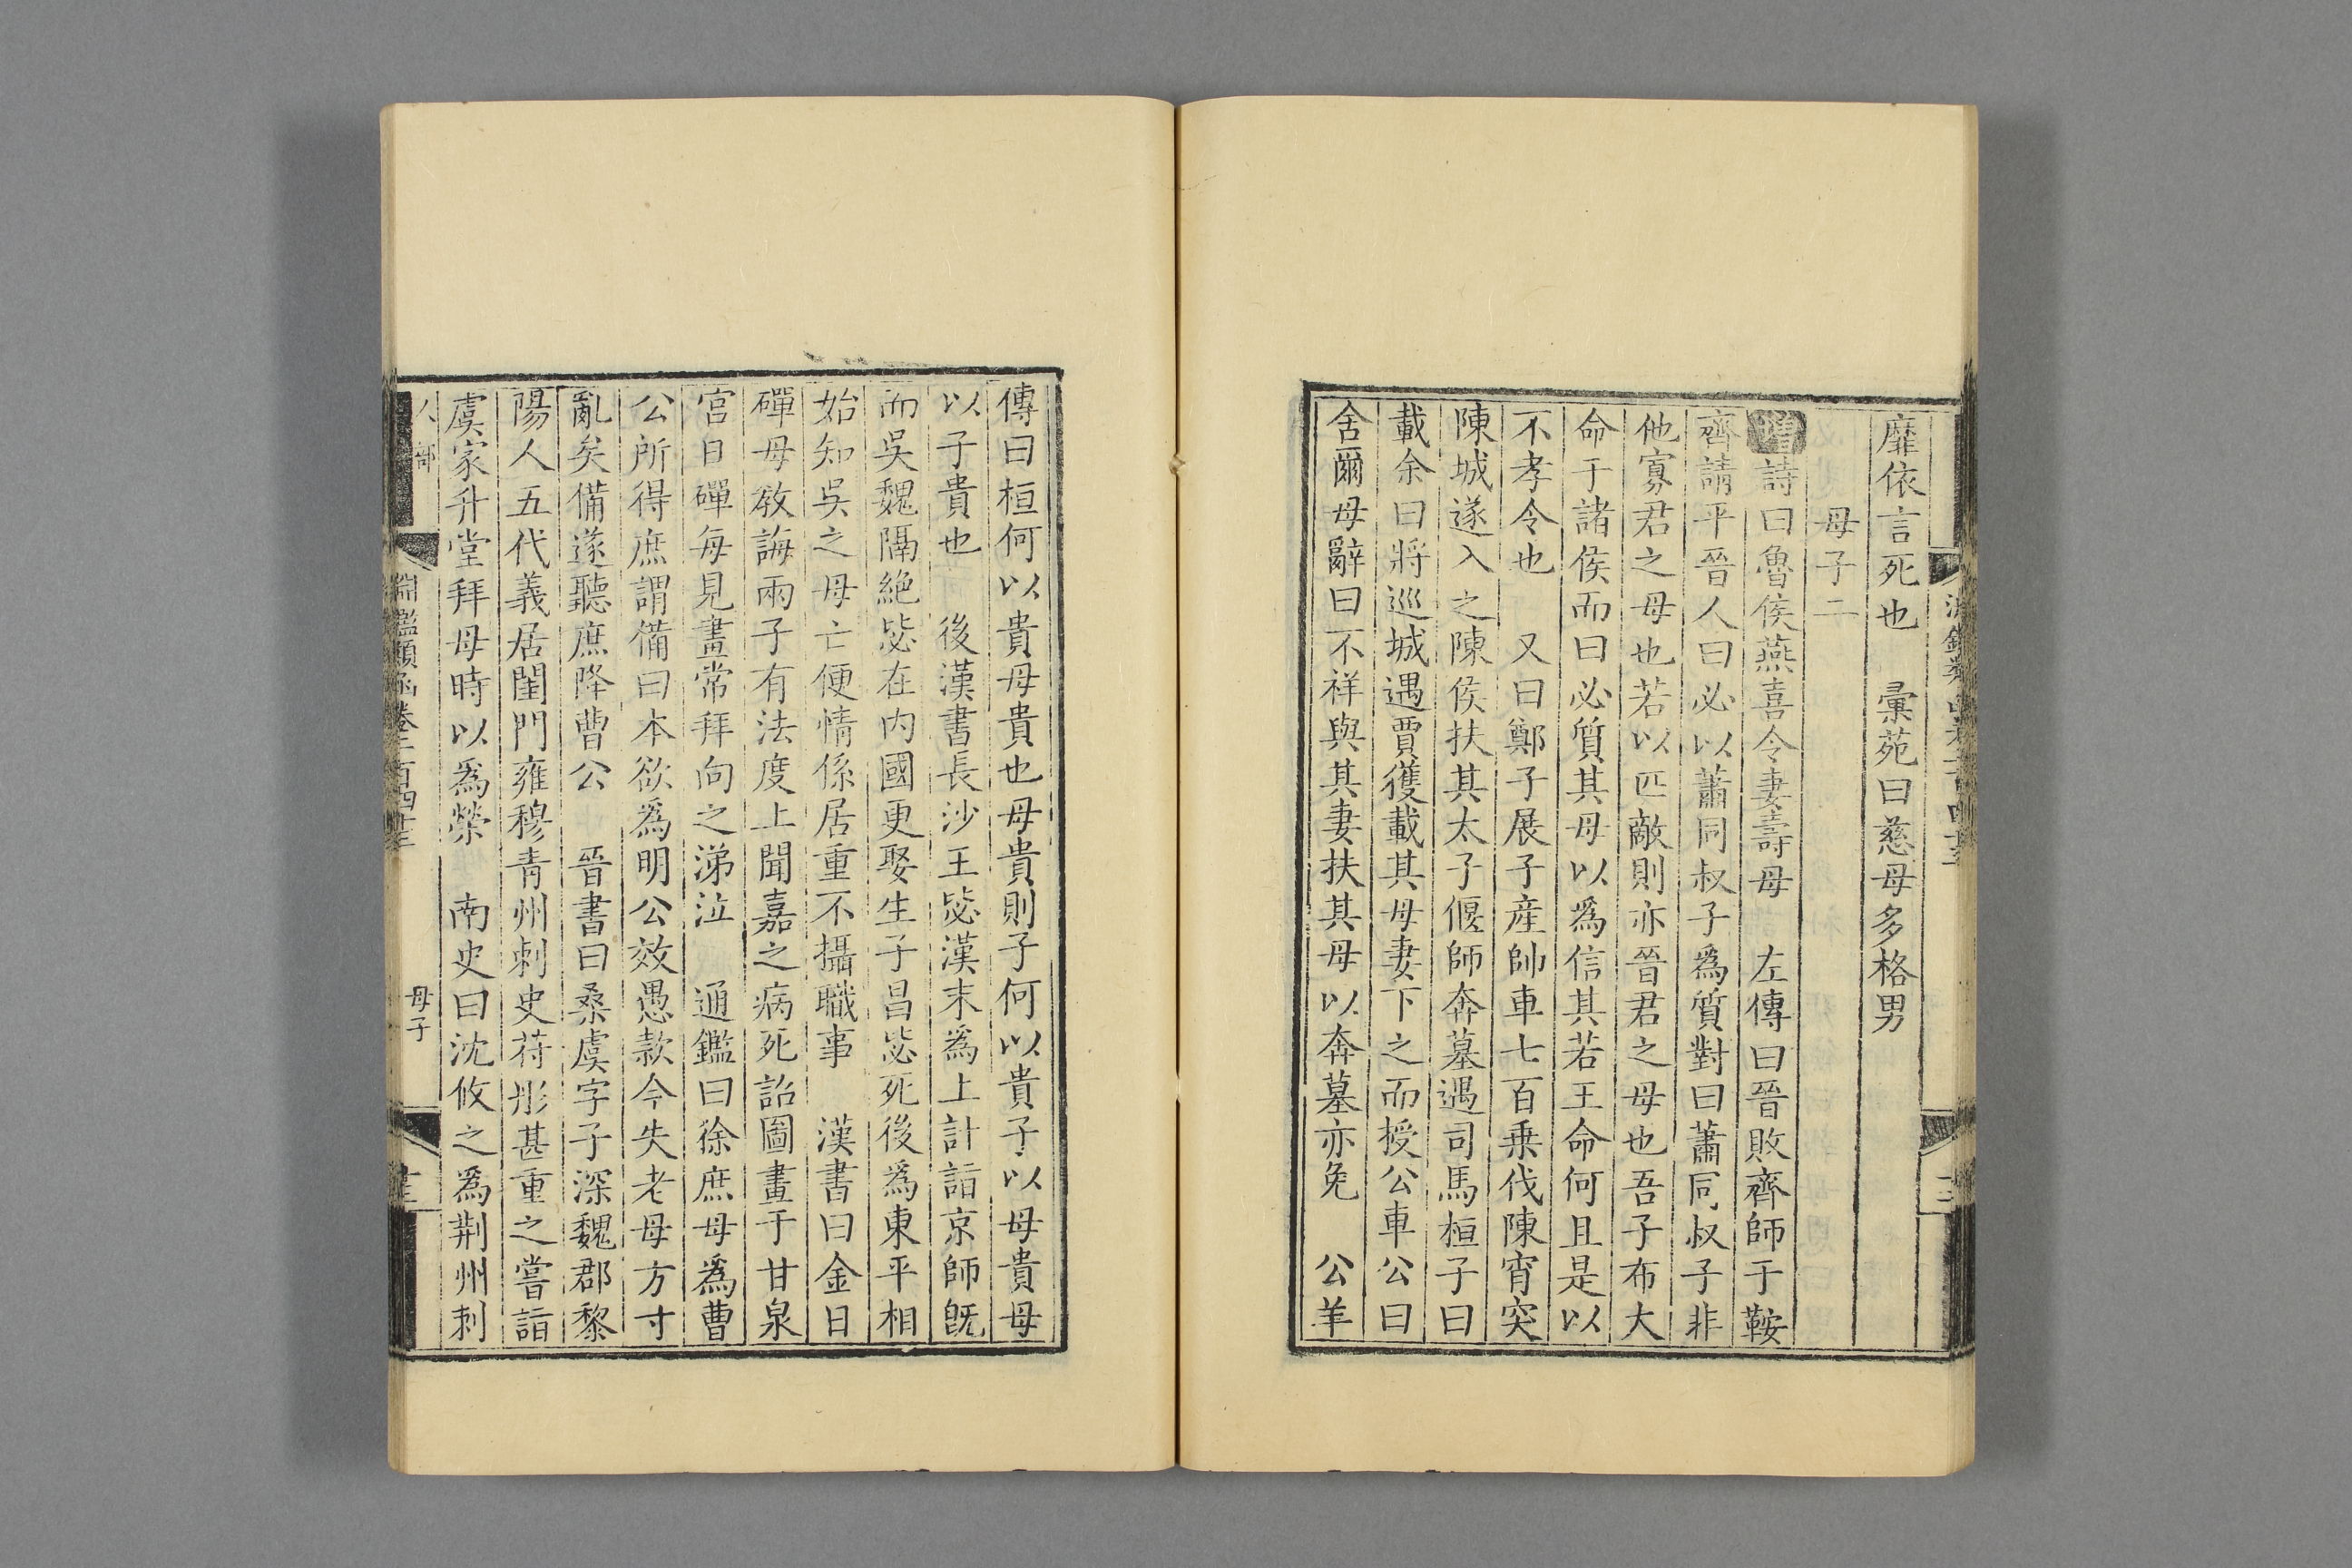 靡依言死也　彙苑曰慈母多格男
母子二
增詩曰魯侯燕喜令妻壽母　左傳曰晉敗齊師于鞍
齊請平晉人曰必以蕭同叔子爲質對曰蕭同叔子非
他寡君之母也若以匹敵則亦晉君之母也吾子布大
命于諸侯而曰必質其母以爲信其若王命何且是以
不孝令也　又曰鄭子展子産帥車七百乗伐陳宵突
陳城遂入之陳侯扶其太子偃師奔墓遇司馬桓子曰
載余曰將巡城遇賈獲載其母妻下之而授公車公曰
舍爾母辭曰不祥與其妻扶其母以奔墓亦免　公羊
傳曰桓何以貴母貴也母貴則子何以貴子以母貴母
以子貴也　後漢書長沙王毖漢末爲上計詣京師旣
而吳魏隔絶毖在内國更娶生子昌毖死後爲東平相
始知吳之母亡便情係居重不攝職事　漢書曰金日
磾母敎誨兩子有法度上聞嘉之病死詔圖畫于甘泉
宮日磾每見畫常拜向之涕泣　通鑑曰徐庶母爲曹
公所得庶謂備曰本欲爲明公效愚款今失老母方寸
亂矣備遂聽庶降曹公　晉書曰桑虞字子深魏郡黎
陽人五代義居閨門雍穆青州刺史苻彤甚重之嘗詣
虞家升堂拜母時以爲榮　南史曰沈攸之爲荆州刺
人部
淵鑑類函卷二百四十三
母子